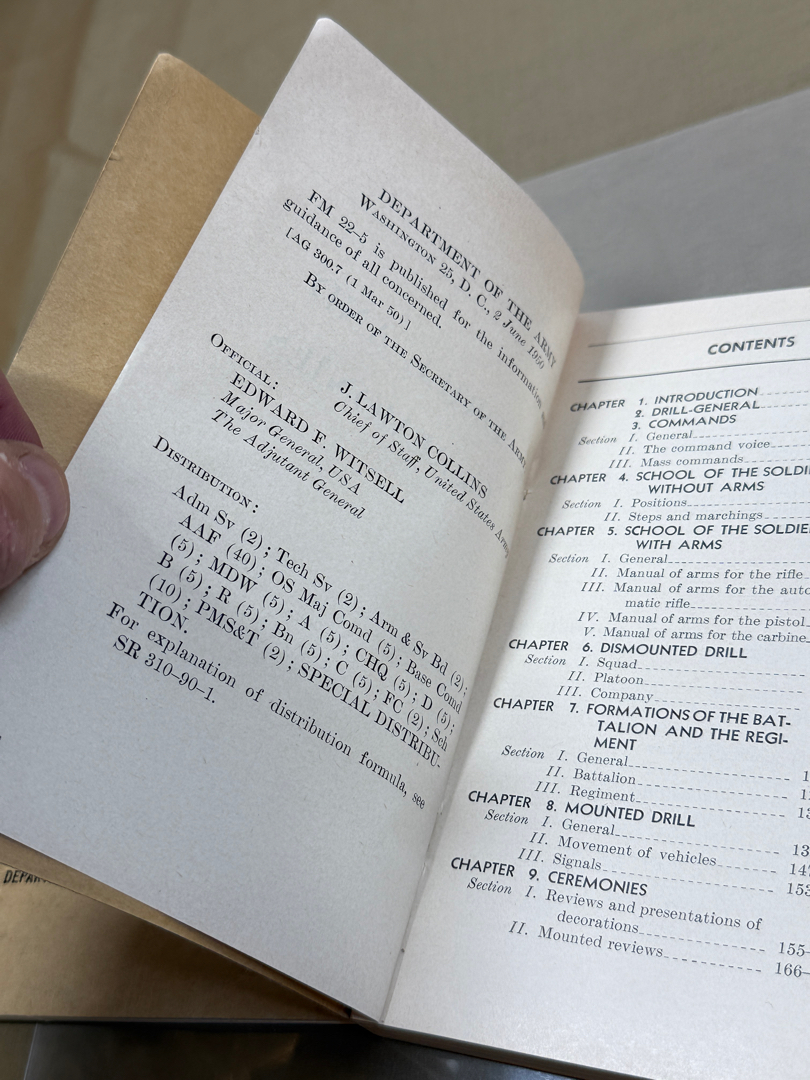 DEPARTMENT OF THE ARMY
WASHINGTON 25, D. C., 2 June 1950
FM 22-5 is published for the information and
guidance of all concerned.
[AG 300.7 (1 Mar 50)]
BY ORDER OF THE SECRETARY OF THE ARMY
OFFICIAL:
J. LAWTON COLLINS
Chief of Staff, United States Army
EDWARD F. WITSELL
Major General, USA
The Adjutant General
DISTRIBUTION:
Adm Sv (2); Tech Sv (2); Arm & Sv Bd (2);
AAF (40); OS Maj Comd (5); Base Comd
(5); MDW (5); A (5); CHQ (5); D (5);
B (5); R (5); Bn (5); C (5); FC (2); Sch
(10); PMS&T (2); SPECIAL DISTRIBU-
TION.
For explanation of distribution formula, see
SR 310-90-1.
CONTENTS
CHAPTER 1. INTRODUCTION
2. DRILL-GENERAL
3. COMMANDS
Section I. General
II. The command voice
III. Mass commands
CHAPTER 4. SCHOOL OF THE SOLDI
WITHOUT ARMS
Section I. Positions
II. Steps and marchings
CHAPTER 5. SCHOOL OF THE SOLDIE
WITH ARMS
Section I. General
II. Manual of arms for the rifle
III. Manual of arms for the auto
matic rifle
IV. Manual of arms for the pistol
V. Manual of arms for the carbine
CHAPTER 6. DISMOUNTED DRILL
Section I. Squad
II. Platoon
III. Company
CHAPTER 7. FORMATIONS OF THE BAT-
TALION AND THE REGI-
MENT
Section I. General
II. Battalion
III. Regiment
CHAPTER 8. MOUNTED DRILL
Section I. General 13
II. Movement of vehicles 147
III. Signals 153
CHAPTER 9. CEREMONIES
Section I. Reviews and presentations of
decorations 155-
II. Mounted reviews 166-